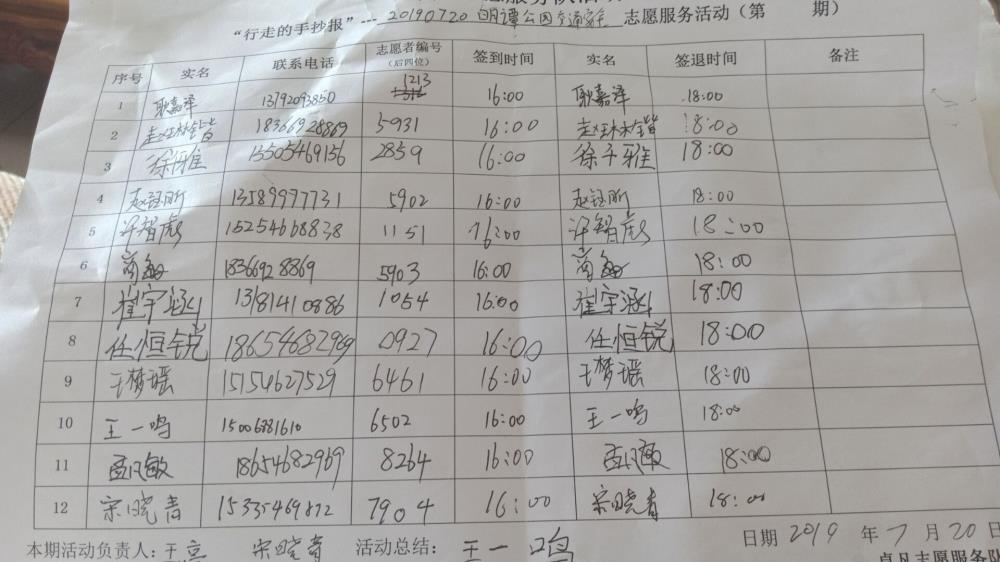 “行走的手抄报”---20190720明潭公园交通安全 志愿服务活动（第 期）
序号 实名 联系电话 志愿者编号（后四位） 签到时间 实名 签退时间 备注
1 耿嘉泽 13192093850 1213 16:00 耿嘉泽 18:00
2 18366928869 5931 16:00 18:00
3 徐子雅 15505469156 2859 16:00 徐子雅 18:00
4 赵钰昕 13589977731 5902 16:00 赵钰昕 18:00
5 许智彪 15254668838 1151 16:00 许智彪 18:00
6 18366928869 5903 16:00 18:00
7 崔宇涵 13181410886 1054 16:00 崔宇涵 18:00
8 任恒锐 18654682969 0927 16:00 任恒锐 18:00
9 王梦瑶 15154627529 6461 16:00 王梦瑶 18:00
10 王一鸣 15006881610 6502 16:00 王一鸣 18:00
11 18654682969 8264 16:00 18:00
12 宋晓青 15335469812 7904 16:00 宋晓青 18:00
日期 2019 年 7 月 20 日
本期活动负责人: 王亮 宋晓青 活动总结: 王一鸣
卓凡志愿服务队